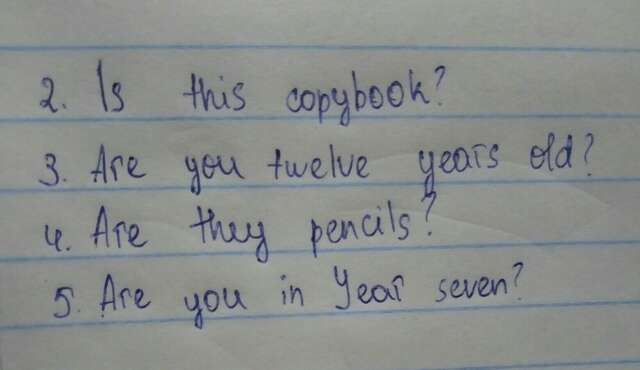 2. Is this copybook?
3. Are you twelve years old?
4. Are they pencils?
5. Are you in Year seven?